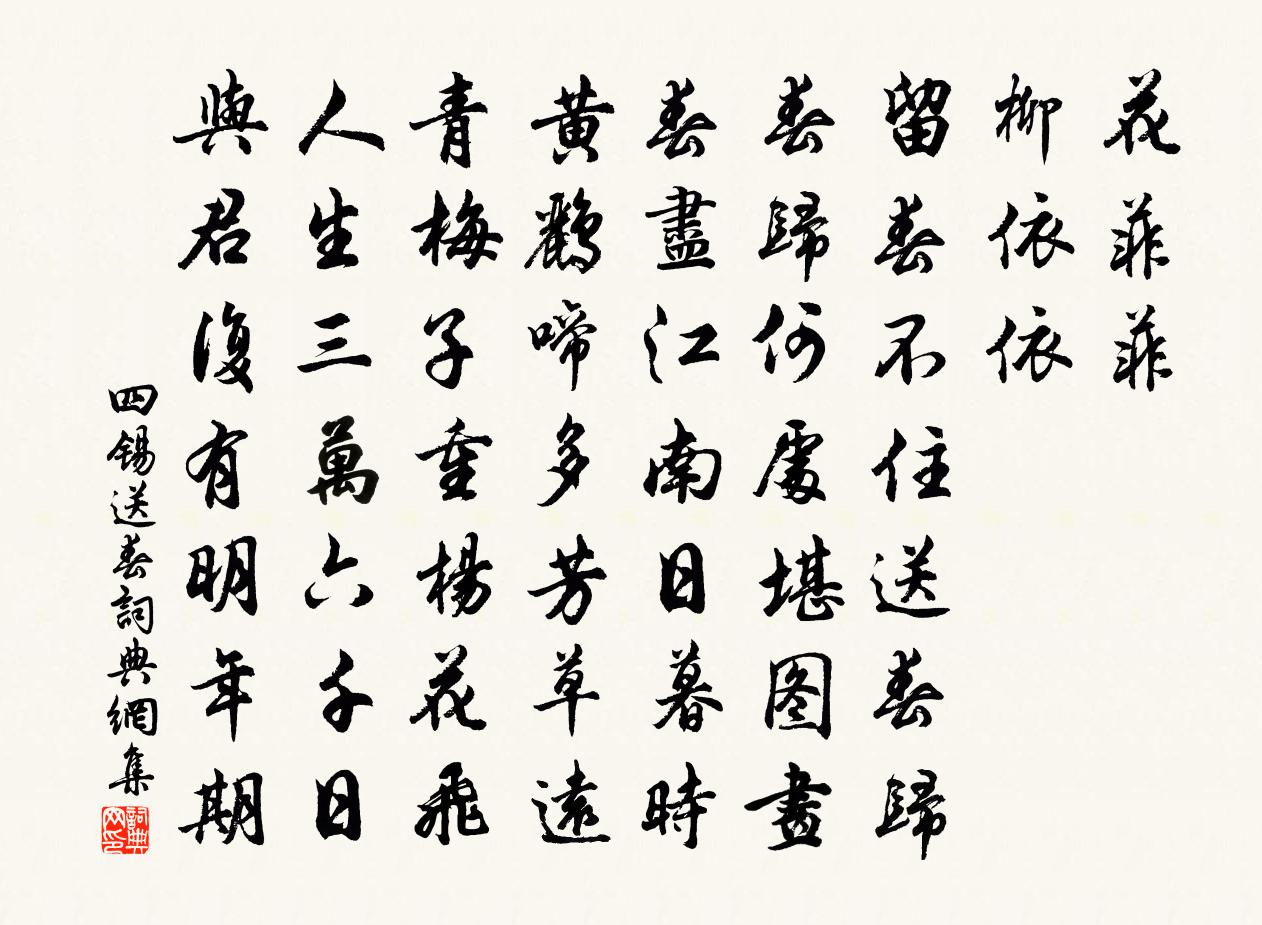 花菲菲
柳依依
留春不住送春歸
春歸何處堪图畫
春盡江南日暮時
黃鸝啼多芳草遠
青梅子重楊花飛
人生三萬六千日
與君復有明年期
四錫送春詞典網集
詞典
网印